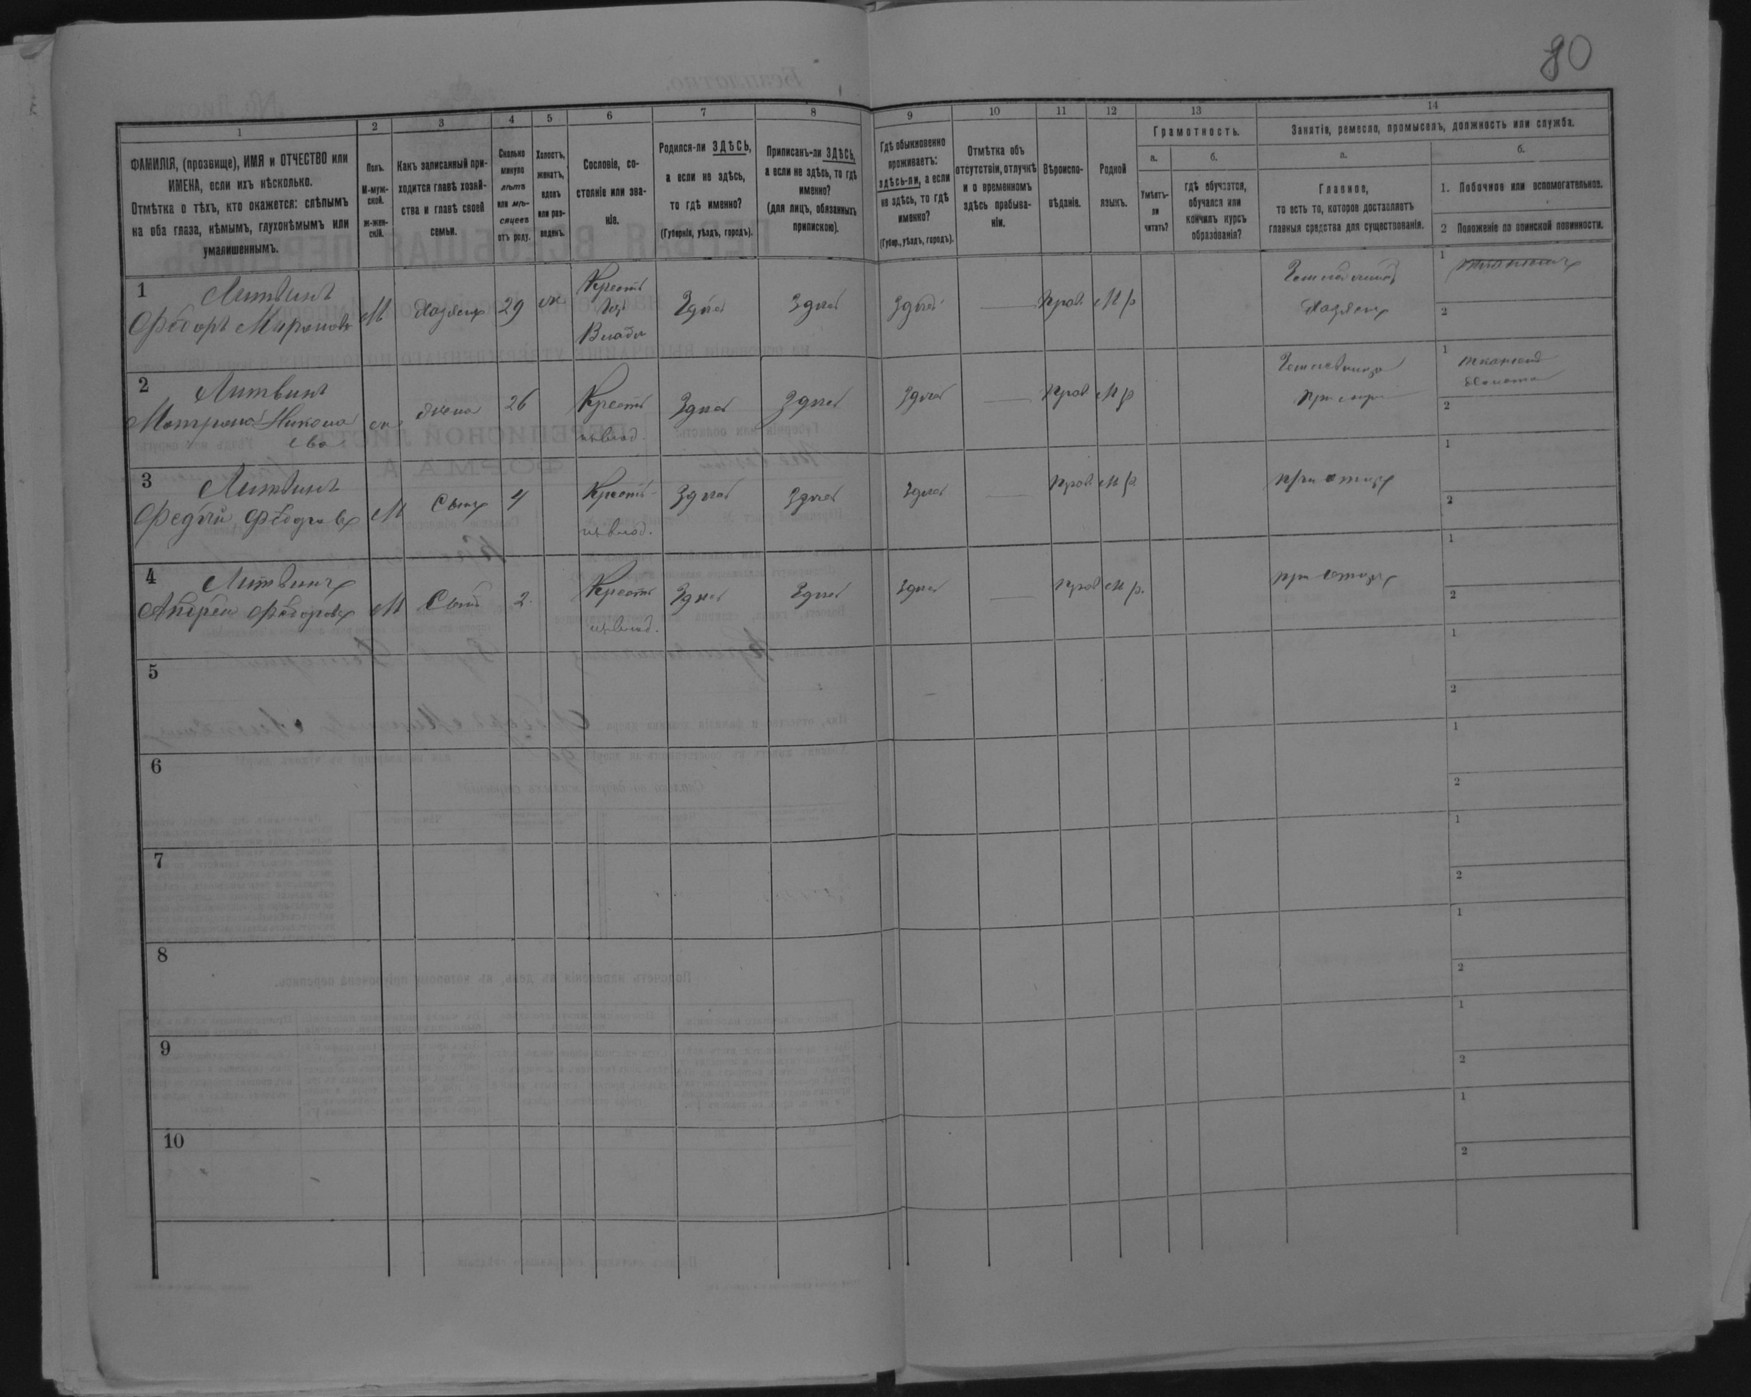 80
1 2 3 4 5 6 7 8 9 10 11 12 13 14
ФАМИЛІЯ, (прозвище), ИМЯ и ОТЧЕСТВО или
ИМЕНА, если ихъ нѣсколько.
Отмѣтка о тѣхъ, кто окажется: слѣпымъ
на оба глаза, нѣмымъ, глухонѣмымъ или
умалишеннымъ.
Полъ.
М-муж-
ской.
Ж-жен-
скій.
Какъ записанный при-
ходится главѣ хозяй-
ства и главѣ своей
семьи.
Сколько
минуло
лѣтъ
или мѣ-
сяцевъ
отъ роду.
Холостъ,
женатъ,
вдовъ
или раз-
веденъ.
Сословіе, со-
стояніе или зва-
ніе.
Родился-ли ЗДѢСЬ,
а если не здѣсь,
то гдѣ именно?
(Губернія, уѣздъ, городъ).
Приписанъ-ли ЗДѢСЬ,
а если не здѣсь, то гдѣ
именно?
(для лицъ, обязанныхъ
припискою).
Гдѣ обыкновенно
проживаетъ:
здѣсь-ли, а если
не здѣсь, то гдѣ
именно?
(Губер., уѣздъ, городъ).
Отмѣтка объ
отсутствіи, отлучкѣ
и о временномъ
здѣсь пребыва-
ніи.
Вѣроиспо-
вѣданіе.
Родной
языкъ.
Грамотность.
а.
Умѣетъ-
ли
читать?
б.
гдѣ обучается,
обучался или
кончилъ курсъ
образованія?
Занятія, ремесло, промыселъ, должность или служба.
а.
Главное,
то есть то, которое доставляетъ
главныя средства для существованія.
б.
1. Побочное или вспомогательное.
2 Положеніе по воинской повинности.
1 Литвинъ
Ѳедоръ Мироновъ М Хозяинъ 29 ж Крест. Здѣсь Здѣсь Здѣсь — Прав. М р
Хозяинъ
1
2
2 Литвинъ
Матрона Никола
ева ж жена 26 Крест. Здѣсь Здѣсь Здѣсь — Прав. М р
при мужѣ
1
2
3 Литвинъ
Ѳедоровъ М Сынъ 4 Крест. Здѣсь Здѣсь Здѣсь — Прав. М р при отцѣ
1
2
4 Литвинъ
Андрей Ѳедоровъ М Сынъ 2 Крест. Здѣсь Здѣсь Здѣсь — Прав. М р. при отцѣ
1
2
5
1
2
6
1
2
7
1
2
8
1
2
9
1
2
10
1
2